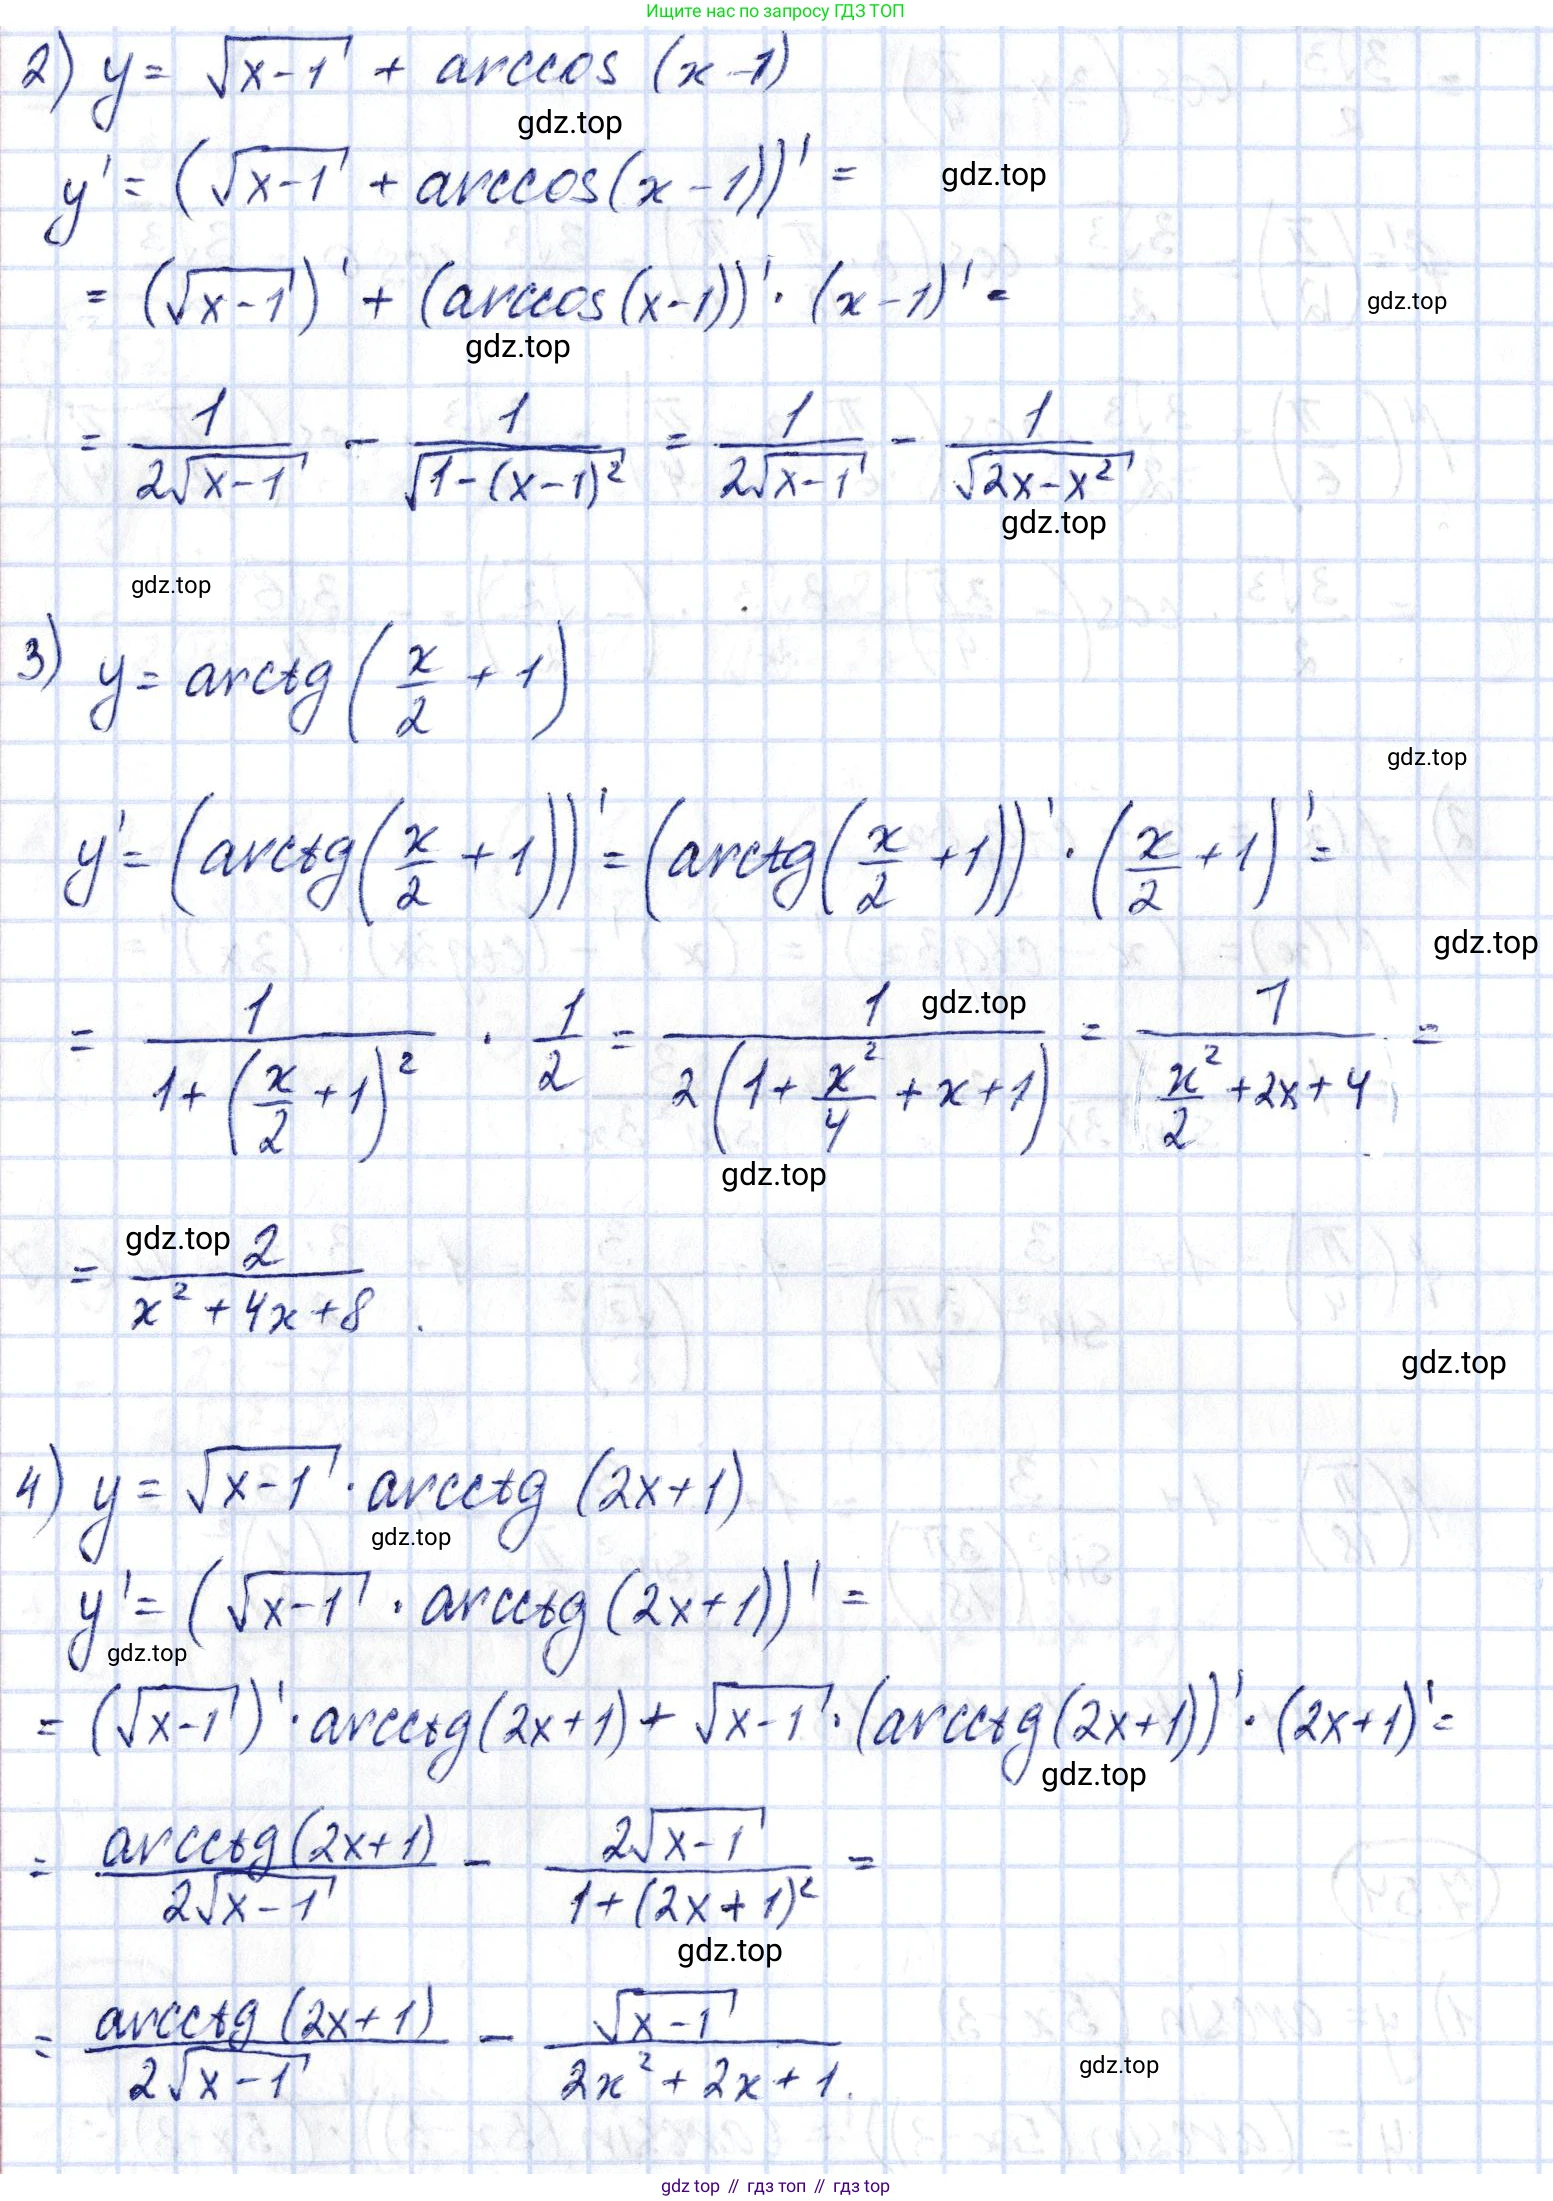 Ищите нас по запросу ГДЗ ТОП
2) y = √(x-1) + arccos (x-1)
gdz.top
y' = (√(x-1) + arccos(x-1))' =
gdz.top
= (√(x-1))' + (arccos(x-1))' · (x-1)' =
gdz.top
gdz.top
= 1/(2√(x-1)) - 1/√(1-(x-1)²) = 1/(2√(x-1)) - 1/√(2x-x²)
gdz.top
gdz.top
3) y = arctg(x/2 + 1)
gdz.top
y' = (arctg(x/2 + 1))' = (arctg(x/2 + 1))' · (x/2 + 1)' =
gdz.top
gdz.top
= 1/(1+(x/2 + 1)²) · 1/2 = 1/(2(1 + x²/4 + x + 1)) = 1/(x²/2 + 2x + 4) =
gdz.top
gdz.top
= 2/(x² + 4x + 8).
gdz.top
4) y = √(x-1) · arcctg (2x+1)
gdz.top
y' = (√(x-1) · arcctg (2x+1))' =
gdz.top
= (√(x-1))' · arcctg(2x+1) + √(x-1) · (arcctg(2x+1))' · (2x+1)' =
gdz.top
= arcctg(2x+1)/(2√(x-1)) - 2√(x-1)/(1+(2x+1)²) =
gdz.top
= arcctg (2x+1)/(2√(x-1)) - √(x-1)/(2x² + 2x + 1).
gdz.top
gdz top // гдз топ // гдз top